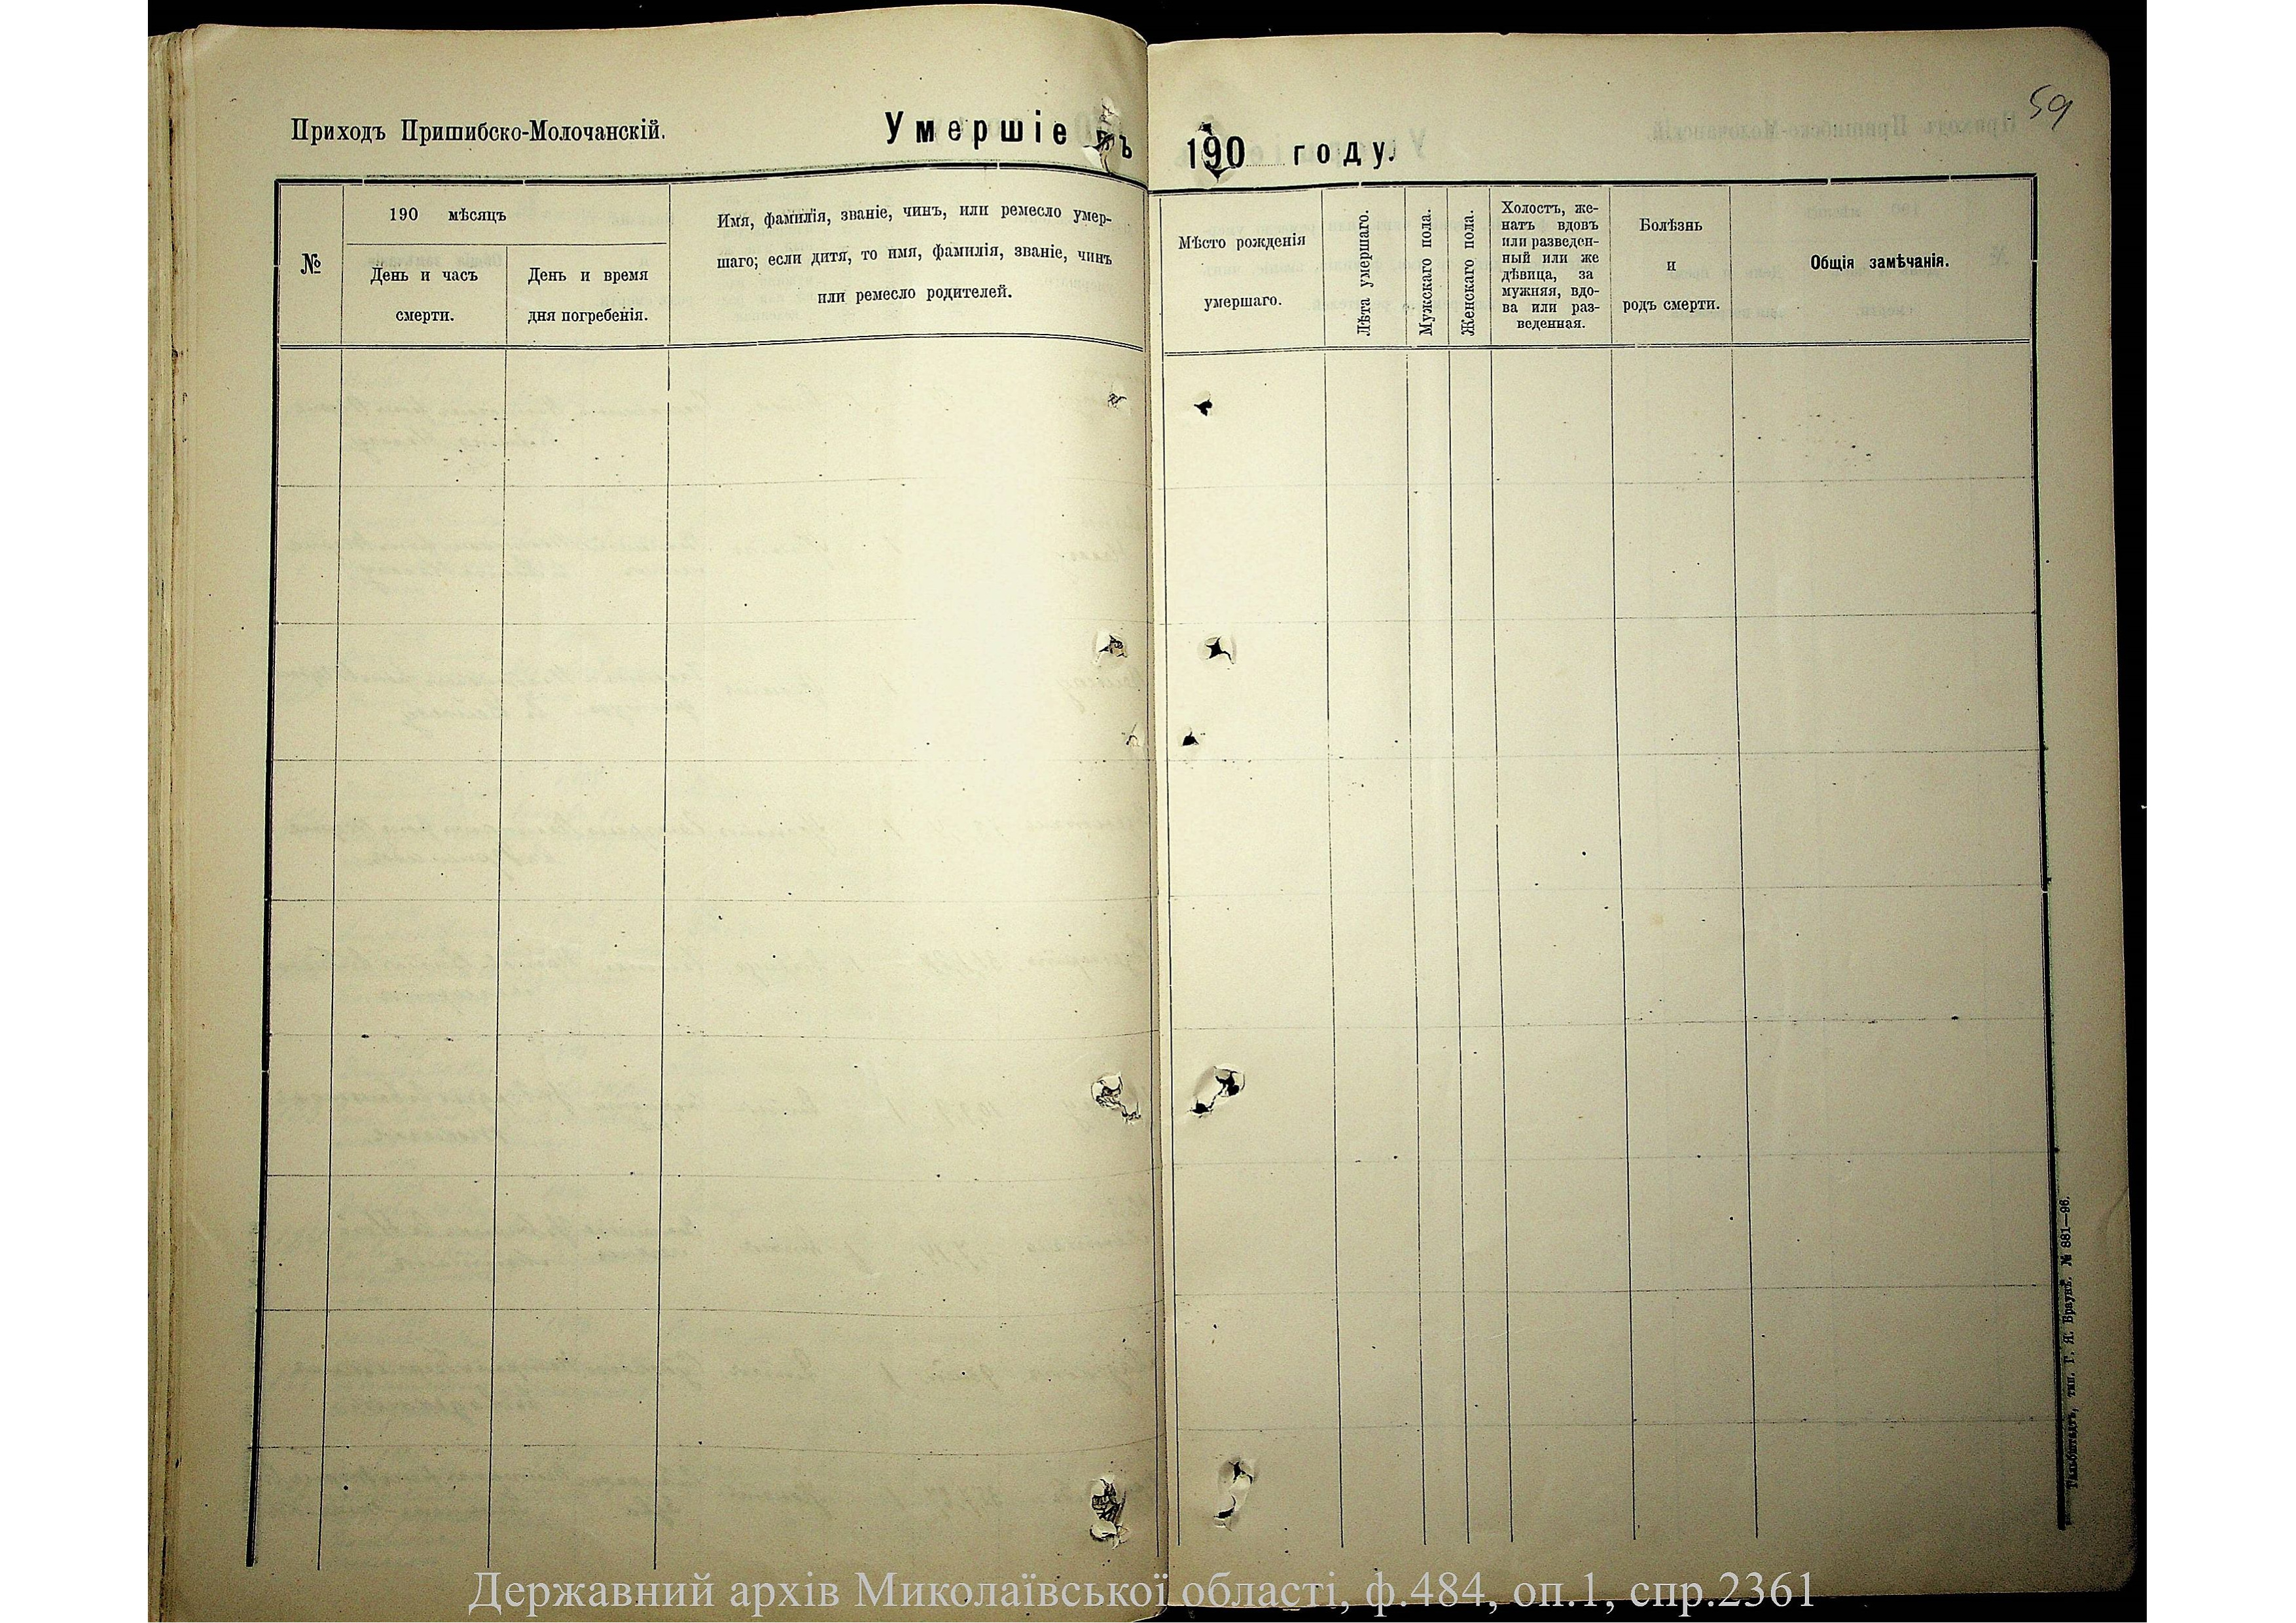 Приходъ Пришибско-Молочанскій.
Умершіе въ 190 году.
59
№
190 мѣсяцъ
День и часъ
смерти.
День и время
дня погребенія.
Имя, фамилія, званіе, чинъ, или ремесло умер-
шаго; если дитя, то имя, фамилія, званіе, чинъ
или ремесло родителей.
Мѣсто рожденія
умершаго.
Лѣта умершаго.
Мужскаго пола.
Женскаго пола.
Холостъ, же-
натъ вдовъ
или разведен-
ный или же
дѣвица, за
мужняя, вдо-
ва или раз-
веденная.
Болѣзнь
и
родъ смерти.
Общія замѣчанія.
тип. Г. Я. Браунъ. № 881—96.
Державний архів Миколаївської області, ф.484, оп.1, спр.2361